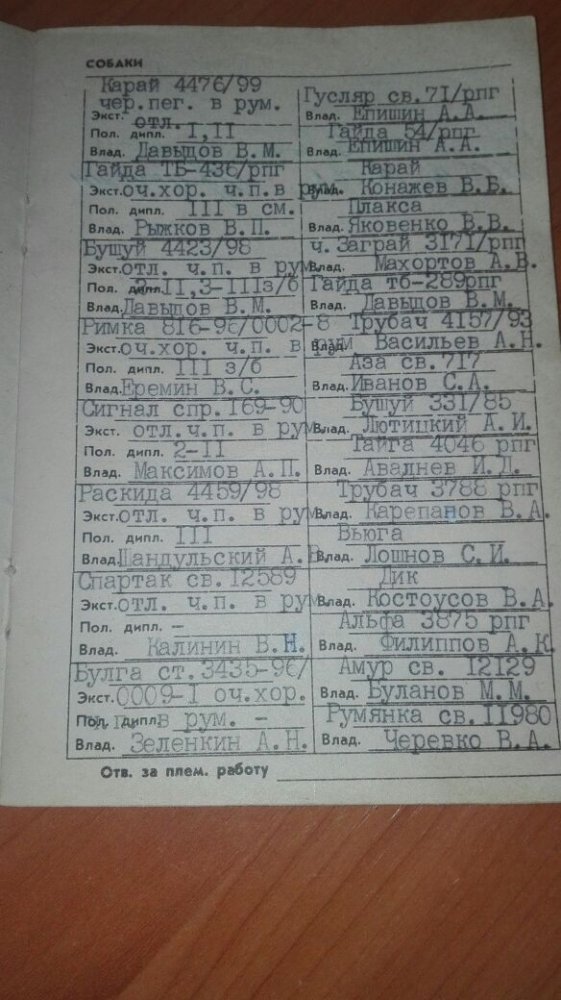 СОБАКИ
Карай 4476/99
чер.пег. в рум.
Экст. отл.
Пол. дипл. I,II
Влад. Давыдов В.М.
Гайда ТБ-436/рпг
Экст. оч.хор. ч.п.в рум.
Пол. дипл. III в см.
Влад. Рыжков В.П.
Бушуй 4423/98
Экст. отл. ч.п. в рум.
Пол. дипл. II,3-IIIз/б
Влад. Давыдов В.М.
Римка 816-96/0002-8
Экст. оч.хор. ч.п. в рум
Пол. дипл. III з/б
Влад. Еремин В.С.
Сигнал спр.169-90
Экст. отл.ч.п. в рум.
Пол. дипл. 2-II
Влад. Максимов А.П.
Раскида 4459/98
Экст. отл. ч.п. в рум.
Пол. дипл. III
Влад. Шандульский А.
Спартак св.I2589
Экст. отл. ч.п. в рум.
Пол. дипл. –
Влад. Калинин В.Н.
Булга ст.3435-96/
Экст. 0009-I оч.хор.
Пол. дипл. в рум. –
Влад. Зеленкин А.Н.
Гусляр св.7I/рпг
Влад. Епишин А.А.
Гайда 54/рпг
Влад. Епишин А.А.
Карай
Влад. Конажев В.Б.
Плакса
Влад. Яковенко В.В.
ч. Заграй 3I7I/рпг
Влад. Махортов А.В.
Гайда тб-289рпг
Влад. Давыдов В.М.
Трубач 4157/93
Влад. Васильев А.Н.
Аза св.7I7
Влад. Иванов С.А.
Бушуй 33I/85
Влад. Лютицкий А.И.
Тайга 4046 рпг
Влад. Аваднев И.Д.
Трубач 3788 рпг
Влад. Карепанов В.А.
Вьюга
Влад. Лошнов С.И.
Дик
Влад. Костоусов В.А.
Альфа 3875 рпг
Влад. Филиппов А.К.
Амур св. I2I29
Влад. Буланов М.М.
Румянка св.II980
Влад. Черевко В.А.
Отв. за плем. работу